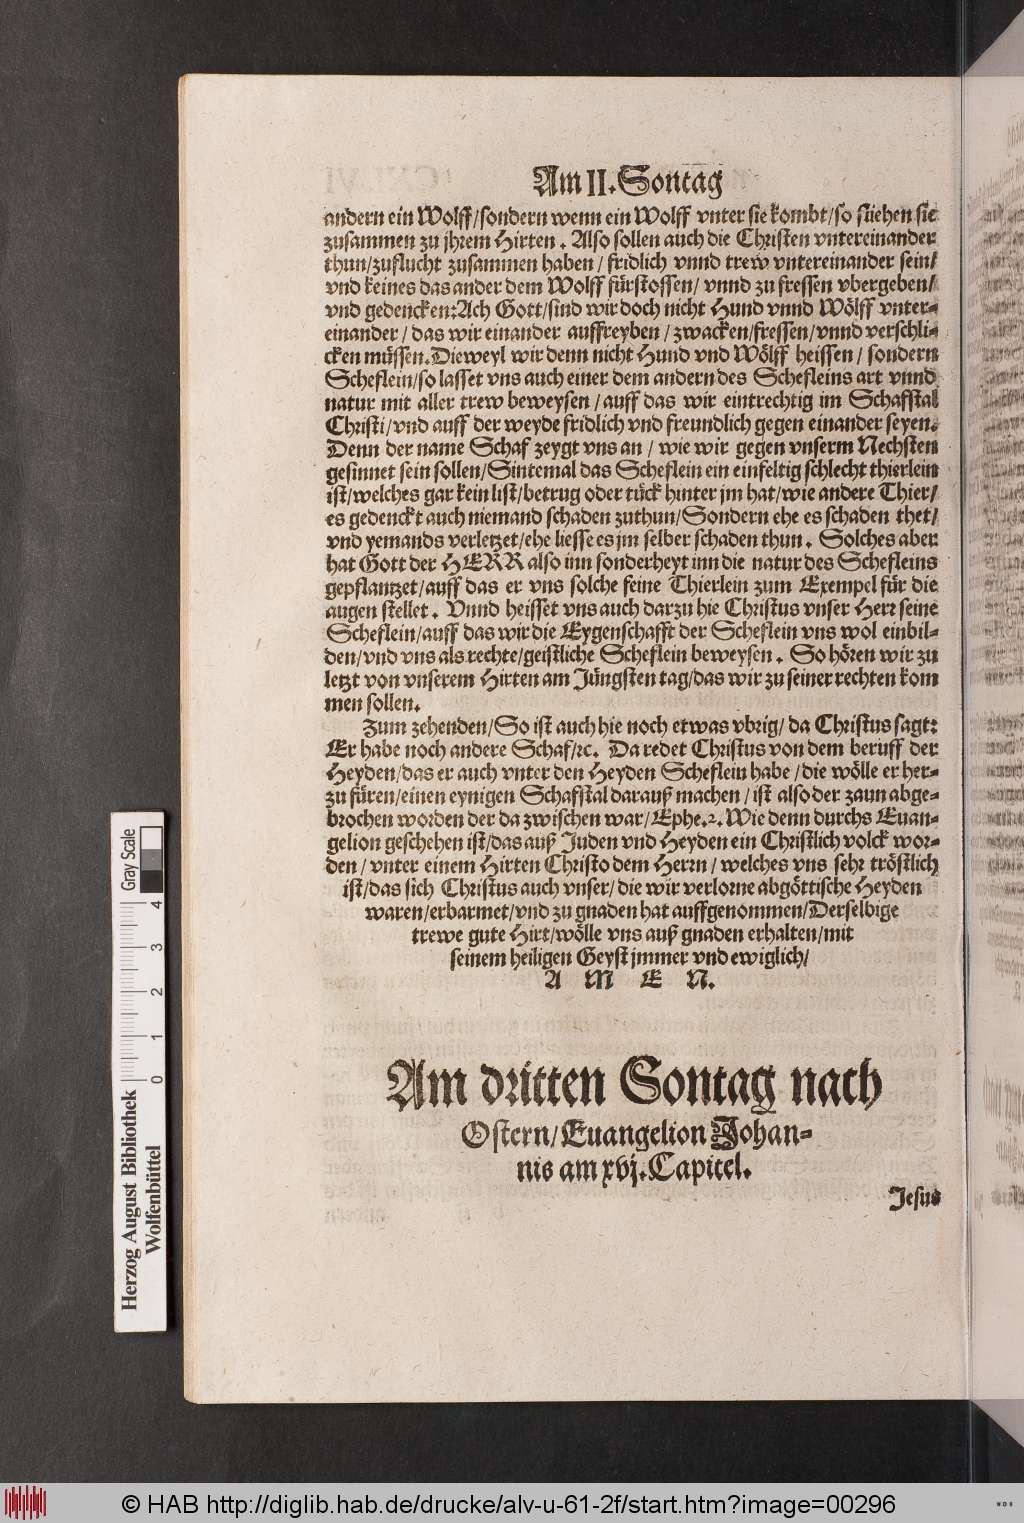 Am II. Sontag
andern ein Wolff/sondern wenn ein Wolff vnter sie kombt/so fliehen sie
zusammen zu jhrem Hirten. Also sollen auch die Christen vntereinander
thun/zuflucht zusammen haben/ fridlich vnnd trew vntereinander sein/
vnd keines das ander dem Wolff fürstossen/ vnnd zu fressen vbergeben/
vnd gedencken: Ach Gott/sind wir doch nicht Hund vnnd Wölff vnter-
einander/ das wir einander auffreyben/ zwacken/fressen/vnnd verschli-
cken müssen. Dieweyl wir denn nicht Hund vnd Wölff heissen/ sondern
Scheflein/so lasset vns auch einer dem andern des Schefleins art vnnd
natur mit aller trew beweysen/auff das wir eintrechtig im Schafstal
Christi/vnd auff der weyde fridlich vnd freundlich gegen einander seyen.
Denn der name Schaf zeygt vns an/ wie wir gegen vnserm Nechsten
gesinnet sein sollen/Sintemal das Scheflein ein einfeltig schlecht thierlein
ist/welches gar kein list/betrug oder tück hinter jm hat/wie andere Thier/
es gedenckt auch niemand schaden zuthun/Sondern ehe es schaden thet/
vnd yemands verletzet/ehe liesse es jm selber schaden thun. Solches aber
hat Gott der HERR also inn sonderheyt inn die natur des Schefleins
gepflantzet/auff das er vns solche feine Thierlein zum Exempel für die
augen stellet. Vnnd heisset vns auch darzu hie Christus vnser Herr seine
Scheflein/auff das wir die Eygenschafft der Scheflein vns wol einbil-
den/vnd vns als rechte/geistliche Scheflein beweysen. So hören wir zu
letzt von vnserem Hirten am Jüngsten tag/das wir zu seiner rechten kom
men sollen.
Zum zehenden/So ist auch hie noch etwas vbrig/da Christus sagt:
Er habe noch andere Schaf/ꝛc. Da redet Christus von dem beruff der
Heyden/das er auch vnter den Heyden Scheflein habe/die wölle er her-
zu füren/einen eynigen Schafstal darauß machen/ ist also der zaun abge-
brochen worden der da zwischen war/Ephe.2. Wie denn durchs Euan-
gelion geschehen ist/das auß Juden vnd Heyden ein Christlich volck wor-
den/ vnter einem Hirten Christo dem Herrn/ welches vns sehr tröstlich
ist/das sich Christus auch vnser/die wir verlorne abgöttische Heyden
waren/erbarmet/vnd zu gnaden hat auffgenommen/Derselbige
trewe gute Hirt/wölle vns auß gnaden erhalten/mit
seinem heiligen Geyst jmmer vnd ewiglich/
A M E N.
Am dritten Sontag nach
Ostern/Euangelion Johan-
nis am xvj. Capitel.
Jesus
Herzog August Bibliothek
Wolfenbüttel
Gray Scale
0 1 2 3 4
© HAB http://diglib.hab.de/drucke/alv-u-61-2f/start.htm?image=00296